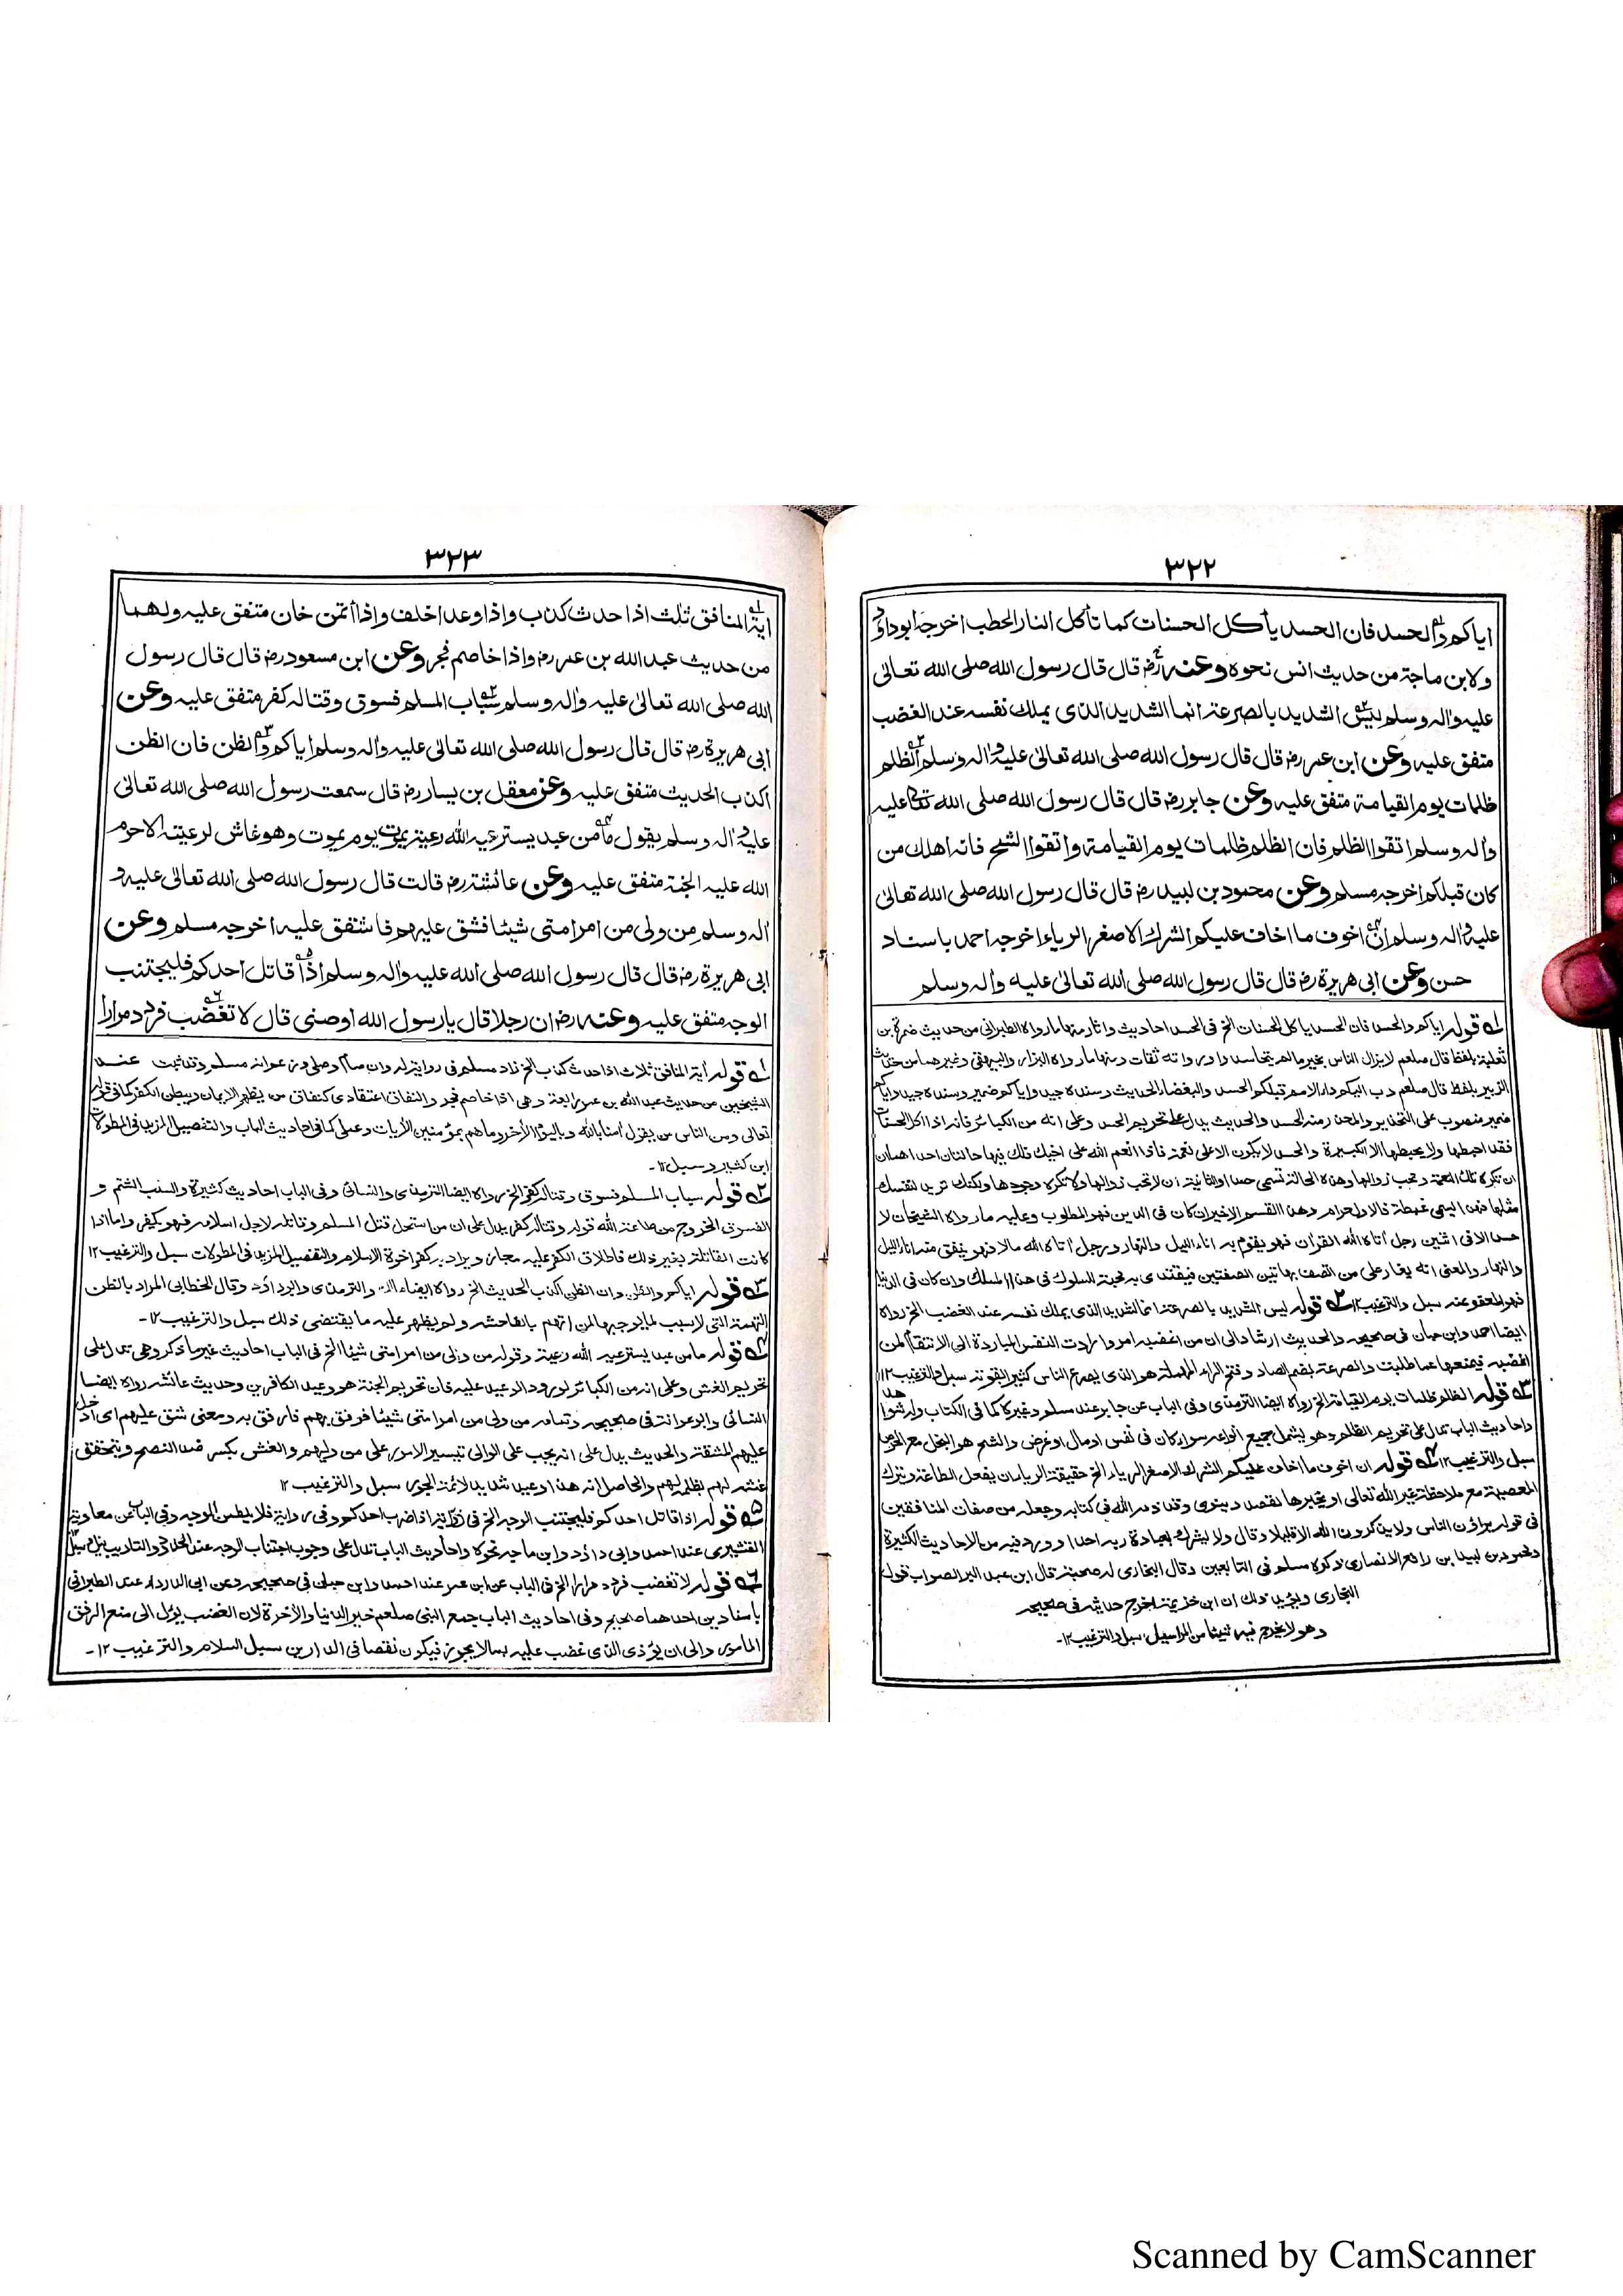 ٣٢٢
اياكم والحسد فان الحسد يأكل الحسنات كما تأكل النار الحطب اخرجه ابوداود
ولابن ماجة من حديث انس نحوه وعنه رض قال قال رسول الله صلى الله تعالىٰ
عليه واٰله وسلم ليس الشديد بالصرعة انما الشديد الذى يملك نفسه عند الغضب
متفق عليه وعن ابن عمر رض قال قال رسول الله صلى الله تعالىٰ عليه واٰله وسلم الظلم
ظلمات يوم القيامة متفق عليه وعن جابر رض قال قال رسول الله صلى الله تعالىٰ عليه
واٰله وسلم اتقوا الظلم فان الظلم ظلمات يوم القيامة واتقوا الشح فانه اهلك من
كان قبلكم اخرجه مسلم وعن محمود بن لبيد رض قال قال رسول الله صلى الله تعالىٰ
عليه واٰله وسلم ان اخوف ما اخاف عليكم الشرك الاصغر الرياء اخرجه احمد باسناد
حسن وعن ابى هريرة رض قال قال رسول الله صلى الله تعالىٰ عليه واٰله وسلم
١ قوله اياكم والحسد فان الحسد ياكل الحسنات الخ فى الحسد احاديث واٰثار منها ما رواه الطبرانى من حديث ضمرة بن
ثعلبة بلفظ قال صلعم لا يزال الناس بخير ما لم يتحاسدوا ورواته ثقات ومنها ما رواه البزار والبيهقى وغيرهما من حديث
الزبير بلفظ قال صلعم دب اليكم داء الامم قبلكم الحسد والبغضاء الحديث وسنده جيد واياكم ضمير
منصوب على التحذير والمحذر منه الحسد والحديث يدل على تحريم الحسد وعلى انه من الكبائر فانه اذا اكل الحسنات
فقد احبطها ولا يحبطها الا الكبيرة والحسد لا يكون الا على نعمة فاذا انعم الله على اخيك تلك فيها حالتان احداهما
ان تكره تلك النعمة وتحب زوالها وهذه الحالة تسمى حسدا والثانية ان لا تحب زوالها ولا تكره وجودها ولكنك تريد لنفسك
مثلها فهذا يسمى غبطة فالاول حرام وهذا القسم الاخير ان كان فى الدين فهو المطلوب وعليه ما رواه الشيخان لا
حسد الا فى اثنين رجل اٰتاه الله القراٰن فهو يقوم به اٰناء الليل والنهار ورجل اٰتاه الله مالا فهو ينفق منه اٰناء الليل
والنهار والمعنى انه يغار على من اتصف بهاتين الصفتين فيقتدى به محبة للسلوك فى هذا المسلك وان كان فى الدنيا
فهو المعفو عنه سبل والترغيب ١٢ ٢ قوله ليس الشديد بالصرعة انما الشديد الذى يملك نفسه عند الغضب الخ رواه
ايضا احمد وابن حبان فى صحيحه والحديث ارشاد الى ان من اغضبه امر وارادت النفس المبادرة الى الانتقام لمن
اغضبه فيمنعها عما طلبت والصرعة بضم الصاد وفتح الراء المهملة هو الذى يصرع الناس كثير القوته سبل والترغيب ١٢
٣ قوله الظلم ظلمات يوم القيامة الخ رواه ايضا الترمذى وفى الباب عن جابر عند مسلم وغيره كما فى الكتاب
واحاديث الباب تدل على تحريم الظلم وهو يشمل جميع انواعه سواء كان فى نفس او مال او عرض والشح هو البخل مع الحرص
سبل والترغيب ١٢ ٤ قوله ان اخوف ما اخاف عليكم الشرك الاصغر الرياء الخ حقيقة الرياء ان يفعل الطاعة ويترك
المعصية مع ملاحظة غير الله تعالى او يخبر بها لقصد دنيوى وقد ذمه الله فى كتابه وجعله من صفات المنافقين
فى قوله يراؤن الناس ولا يذكرون الله الا قليلا وقال ولا يشرك بعبادة ربه احدا وورد فيه من الاحاديث الكثيرة
ومحمود بن لبيد ابن رافع الانصارى ذكره مسلم فى التابعين وقال البخارى له صحبة قال ابن عبد البر الصواب قول
البخارى ويؤيد ذلك ان ابن خزيمة اخرج حديثه فى صحيحه
وهو لا يخرج فيه شيئا من المراسيل سبل والترغيب ١٢-
٣٢٣
اٰية المنافق ثلث اذا حدث كذب واذا وعد اخلف واذا اٰتمن خان متفق عليه ولهما
من حديث عبد الله بن عمر رض واذا خاصم فجر وعن ابن مسعود رض قال قال رسول
الله صلى الله تعالىٰ عليه واٰله وسلم سباب المسلم فسوق وقتاله كفر متفق عليه وعن
ابى هريرة رض قال قال رسول الله صلى الله تعالىٰ عليه واٰله وسلم اياكم والظن فان الظن
اكذب الحديث متفق عليه وعن معقل بن يسار رض قال سمعت رسول الله صلى الله تعالىٰ
عليه واٰله وسلم يقول ما من عبد يسترعيه الله رعية يموت يوم يموت وهو غاش لرعيته الا حرم
الله عليه الجنة متفق عليه وعن عائشة رض قالت قال رسول الله صلى الله تعالىٰ عليه و
اٰله وسلم من ولى من امر امتى شيئا فشق عليهم فاشقق عليه اخرجه مسلم وعن
ابى هريرة رض قال قال رسول الله صلى الله عليه واٰله وسلم اذا قاتل احدكم فليجتنب
الوجه متفق عليه وعنه رض ان رجلا قال يا رسول الله اوصنى قال لا تغضب فردد مرارا
١ قوله اٰية المنافق ثلاث اذا حدث كذب الخ زاد مسلم فى رواية له وان صام وصلى وزعم انه مسلم وقد ثبت عند
الشيخين من حديث عبد الله بن عمر رابعة وهى اذا خاصم فجر والنفاق اعتقادى كنفاق من يظهر الايمان ويبطن الكفر كما فى قوله
تعالى ومن الناس من يقول اٰمنا بالله وباليوم الاٰخر وما هم بمؤمنين الاٰيات وعملى كما فى احاديث الباب والتفصيل المزيد فى المطولات
ابن كثير وسبل ١٢-
٢ قوله سباب المسلم فسوق وقتاله كفر الخ رواه ايضا الترمذى والنسائى وفى الباب احاديث كثيرة والسب الشتم و
الفسوق الخروج من طاعة الله قوله وقتاله كفر يدل على ان من استحل قتل المسلم وقاتله لاجل اسلامه فهو كفر واما اذا
كانت المقاتلة بغير ذلك فاطلاق الكفر عليه مجاز ويراد به كفر اخوة الاسلام والتفصيل المزيد فى المطولات سبل والترغيب ١٢
٣ قوله اياكم والظن وان الظن اكذب الحديث الخ رواه ايضا والترمذى وابو داؤد وقال الخطابى المراد بالظن
التهمة التى لا سبب لها يوجبها لمن اتهم بالفاحشة ولم يظهر عليه ما يقتضى ذلك سبل والترغيب ١٢-
٤ قوله ما من عبد يسترعيه الله رعية وقوله من ولى من امر امتى شيئا الخ فى الباب احاديث غير ما ذكر وهى تدل على
تحريم الغش وعلى انه من الكبائر لورود الوعيد عليه فان تحريم الجنة هو وعيد الكافرين وحديث عائشه رواه ايضا
النسائى وابو عوانة فى صحيحه وتمامه من ولى من امر امتى شيئا فرفق بهم فارفق به ومعنى شق عليهم اى ادخل
عليهم المشقة والحديث يدل على انه يجب على الوالى تيسير الامور على من وليهم والغش بكسر ضد النصح ويتحقق
غشه لهم بظلمه لهم والحاصل انه هذا وعيد شديد لائمة الجور سبل والترغيب ١٢
٥ قوله اذا قاتل احدكم فليجتنب الوجه الخ فى رواية اذا ضرب احدكم وفى رواية فلا يلطمن الوجه وفى الباب عن معاوية
القشيرى عند احمد وابى داؤد وابن ماجه نحوه واحاديث الباب تدل على وجوب اجتناب الوجه عند الحد والتاديب
٦ قوله لا تغضب فردد مرارا الخ فى الباب عن ابن عمر عند احمد وابن حبان فى صحيحه وعن ابى الدرداء عند الطبرانى
باسنادين احدهما صحيح وفى احاديث الباب جمع النبى صلعم خير الدنيا والاٰخرة لان الغضب يؤل الى منع الرفق
المامور والى ان يؤذى الذى غضب عليه بما لا يجوز فيكون نقصا فى الدارين سبل السلام والترغيب ١٢-
Scanned by CamScanner